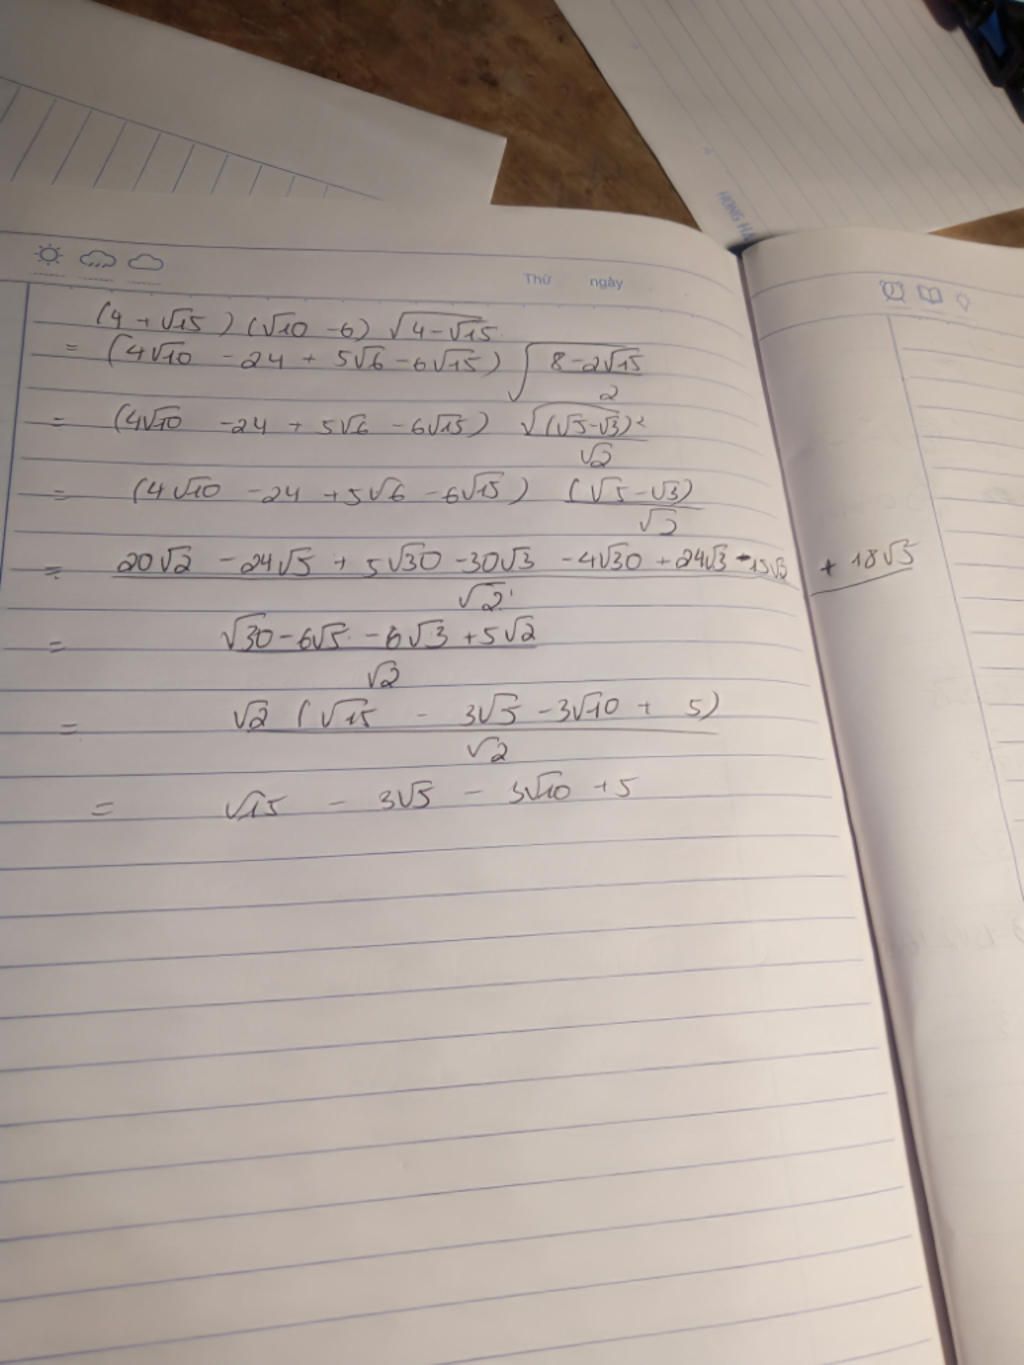 HỒNG HÀ
Thứ ngày
(4 + √15) (√10 - 6) √(4 - √15)
= (4√10 - 24 + 5√6 - 6√15) √((8 - 2√15)/2)
= (4√10 - 24 + 5√6 - 6√15) √((√5 - √3)²)/√2
= (4√10 - 24 + 5√6 - 6√15) (√5 - √3)/√2
= (20√2 - 24√5 + 5√30 - 30√3 - 4√30 + 24√3 - 15√2 + 18√5)/√2
= (√30 - 6√5 - 6√3 + 5√2)/√2
= √2 (√15 - 3√5 - 3√10 + 5)/√2
= √15 - 3√5 - 3√10 + 5